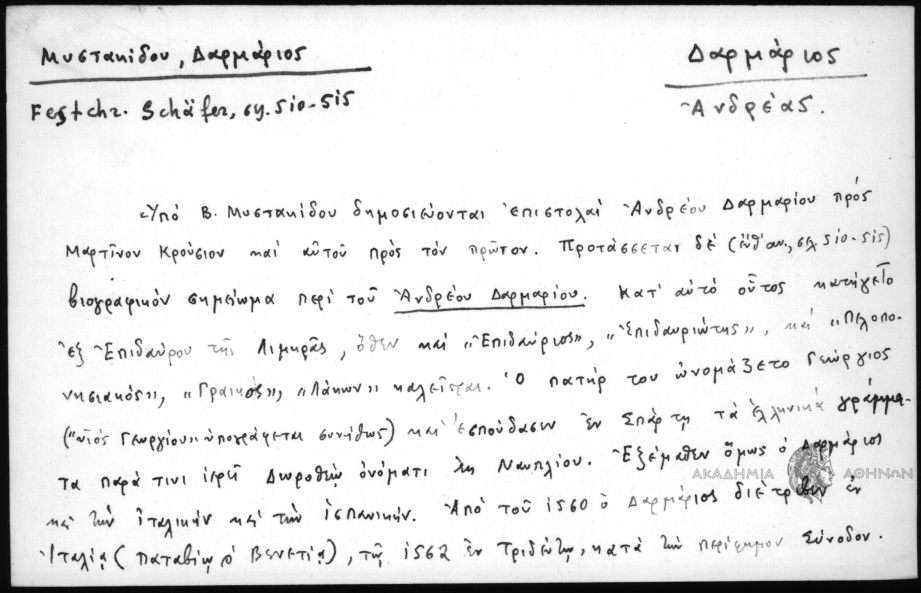 Μυστακίδου, Δαρμάριος
Δαρμάριος
Festchr. Schäfer, σγ. 510-515
Ἀνδρέας.
Ὑπὸ Β. Μυστακίδου δημοσιεύονται ἐπιστολαὶ Ἀνδρέου Δαρμαρίου πρὸς
Μαρτῖνον Κρούσιον καὶ αὐτοῦ πρὸς τὸν πρῶτον. Προτάσσεται δὲ (ἐνθ' ἀν., σελ. 510-515)
βιογραφικὸν σημείωμα περὶ τοῦ Ἀνδρέου Δαρμαρίου. Κατ' αὐτὸ οὗτος κατήγετο
ἐξ Ἐπιδαύρου τῆς Λιμηρᾶς, ὅθεν καὶ "Ἐπιδαύριος", "Ἐπιδαυριώτης", καὶ "Πελοπο-
νησιακός", "Γραικός", "Λάκων" καλεῖται. Ὁ πατήρ του ὠνομάζετο Γεώργιος
("υἱὸς Γεωργίου" ὑπογράφεται συνήθως) καὶ ἐσπούδασεν ἐν Σπάρτῃ τὰ ἑλληνικὰ γράμμα-
τα παρά τινι ἱερεῖ Δωροθέῳ ὀνόματι ἐκ Ναυπλίου. Ἐξέμαθεν ὅμως ὁ Δαρμάριος
καὶ τὴν ἰταλικὴν καὶ τὴν ἱσπανικήν. Ἀπὸ τοῦ 1560 ὁ Δαρμάριος διέτριβεν ἐν
Ἰταλίᾳ (Παταβίῳ ὁ Βενετίᾳ), τῷ 1562 ἐν Τριδέντῳ, κατὰ τὴν περίφημον Σύνοδον.
ΑΚΑΔΗΜΙΑ ΑΘΗΝΩΝ